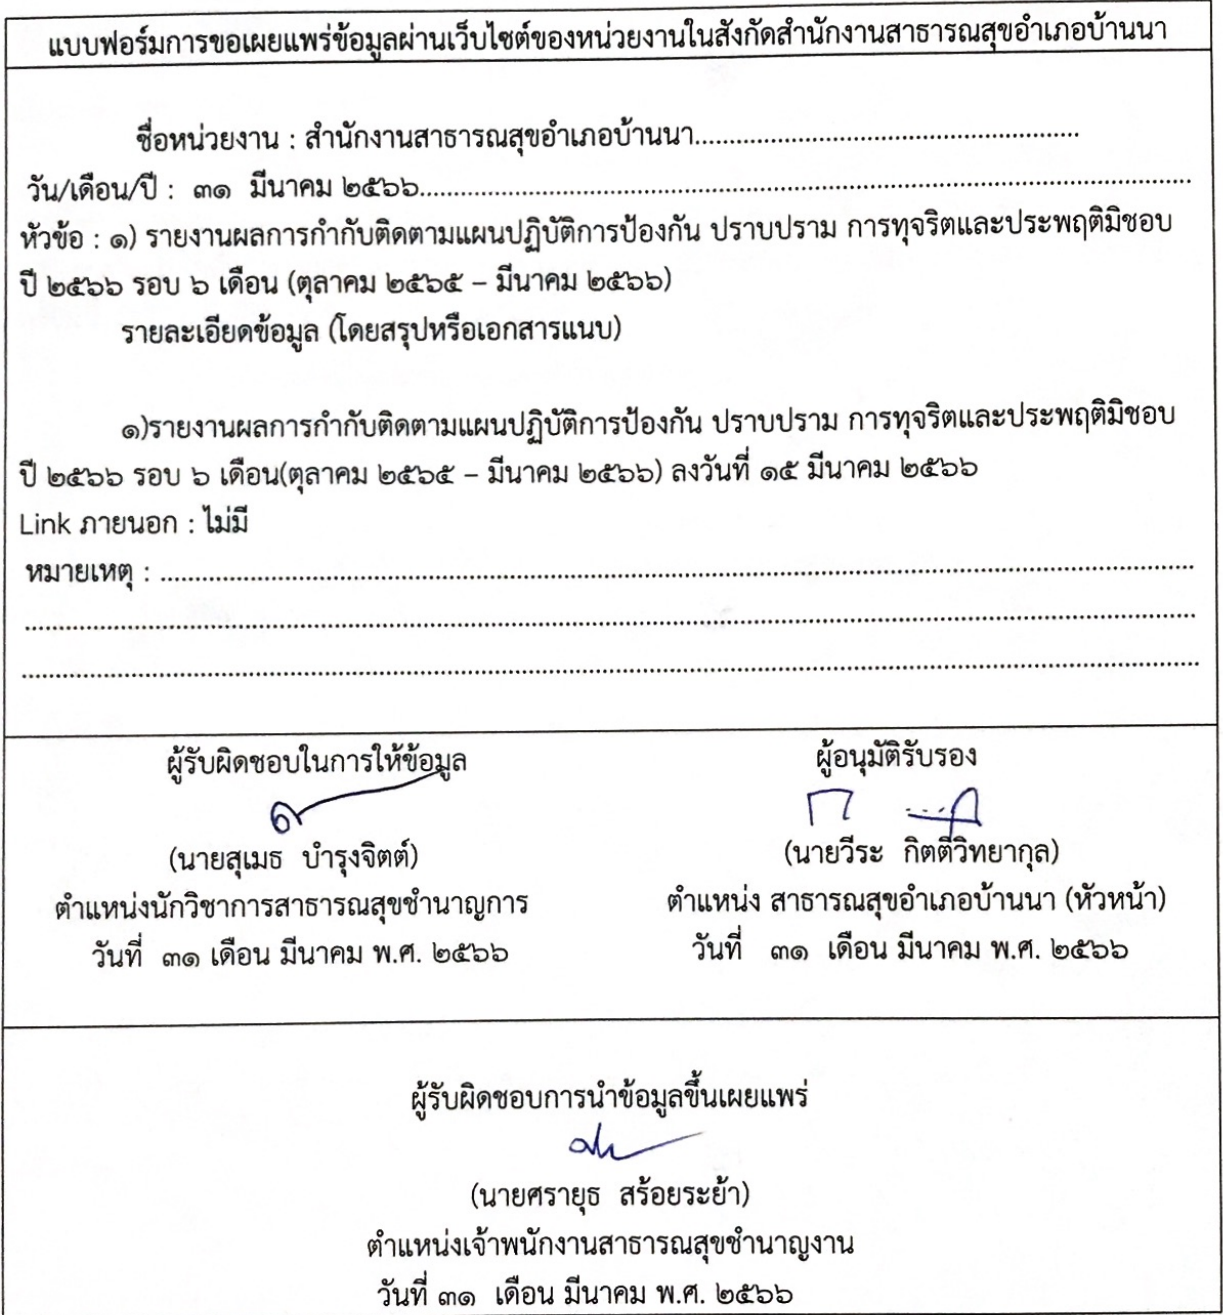 แบบฟอร์มการขอเผยแพร่ข้อมูลผ่านเว็บไซต์ของหน่วยงานในสังกัดสำนักงานสาธารณสุขอำเภอบ้านนา
ชื่อหน่วยงาน : สำนักงานสาธารณสุขอำเภอบ้านนา..........................................................
วัน/เดือน/ปี : ๓๑ มีนาคม ๒๕๖๖....................................................................................................................
หัวข้อ : ๑) รายงานผลการกำกับติดตามแผนปฏิบัติการป้องกัน ปราบปราม การทุจริตและประพฤติมิชอบ
ปี ๒๕๖๖ รอบ ๖ เดือน (ตุลาคม ๒๕๖๕ – มีนาคม ๒๕๖๖)
รายละเอียดข้อมูล (โดยสรุปหรือเอกสารแนบ)
๑)รายงานผลการกำกับติดตามแผนปฏิบัติการป้องกัน ปราบปราม การทุจริตและประพฤติมิชอบ
ปี ๒๕๖๖ รอบ ๖ เดือน(ตุลาคม ๒๕๖๕ – มีนาคม ๒๕๖๖) ลงวันที่ ๑๕ มีนาคม ๒๕๖๖
Link ภายนอก : ไม่มี
หมายเหตุ : ..........................................................................................................................................................
ผู้รับผิดชอบในการให้ข้อมูล ผู้อนุมัติรับรอง
(นายสุเมธ บำรุงจิตต์) (นายวีระ กิตติวิทยากุล)
ตำแหน่งนักวิชาการสาธารณสุขชำนาญการ ตำแหน่ง สาธารณสุขอำเภอบ้านนา (หัวหน้า)
วันที่ ๓๑ เดือน มีนาคม พ.ศ. ๒๕๖๖ วันที่ ๓๑ เดือน มีนาคม พ.ศ. ๒๕๖๖
ผู้รับผิดชอบการนำข้อมูลขึ้นเผยแพร่
(นายศรายุธ สร้อยระย้า)
ตำแหน่งเจ้าพนักงานสาธารณสุขชำนาญงาน
วันที่ ๓๑ เดือน มีนาคม พ.ศ. ๒๕๖๖